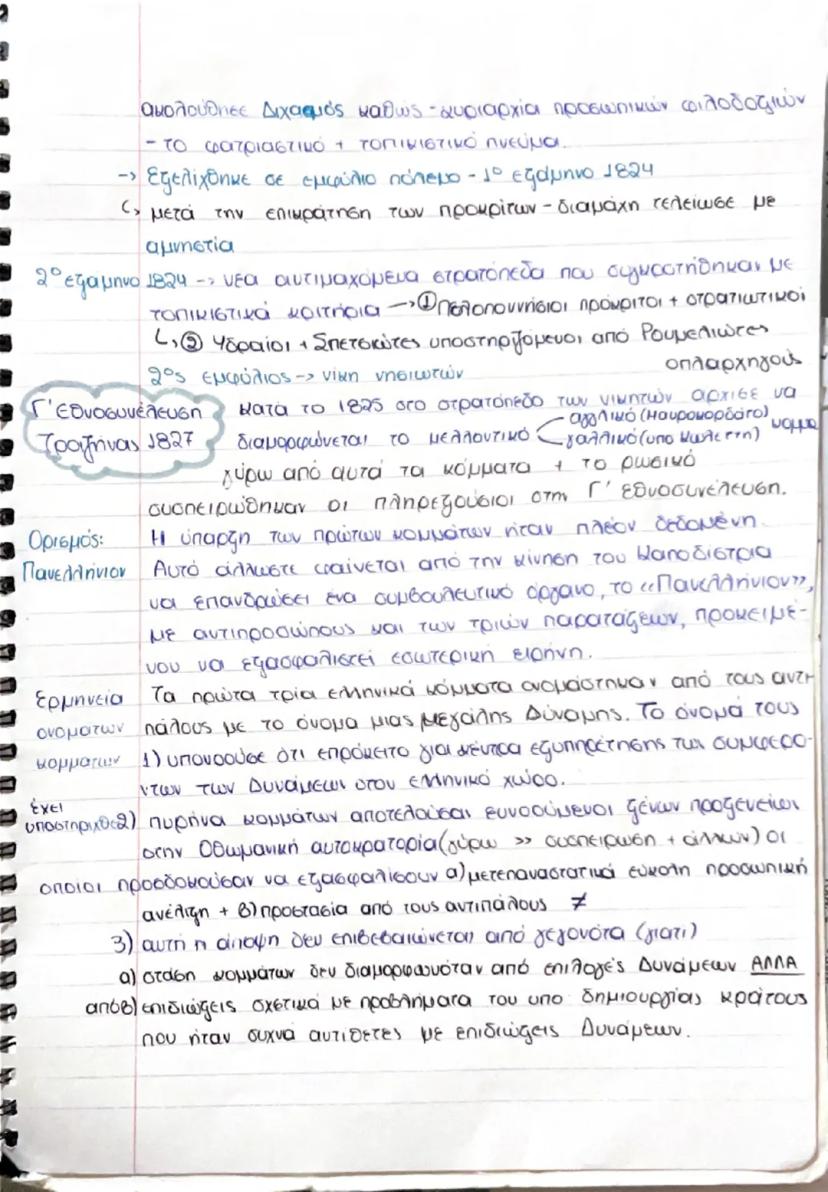 ακολούθησε Διχασμός καθώς - κυριαρχία προσωπικών φιλοδοξιών
- το φατριαστικό + τοπικιστικό πνεύμα.
→ Εξελίχθηκε σε εμφύλιο πόλεμο - 1ο εξάμηνο 1824
↳ μετά την επικράτηση των προκρίτων - διαμάχη τελείωσε με
αμνηστία
2ο εξάμηνο 1824 → νέα αντιμαχόμενα στρατόπεδα που συγκροτήθηκαν με
τοπικιστικά κριτήρια → ① Πελοποννήσιοι πρόκριτοι + στρατιωτικοί
↳ ② Υδραίοι + Σπετσιώτες υποστηριζόμενοι από Ρουμελιώτες
οπλαρχηγούς
2ος εμφύλιος → νίκη νησιωτών
Γ' Εθνοσυνέλευση
Τροιζήνας 1827
Κατά το 1825 στο στρατόπεδο των νικητών άρχισε να
διαμορφώνεται το μελλοντικό αγγλικό (Μαυροκορδάτο)
γαλλικό (υπο Κωλέττη) κόμμα
γύρω από αυτά τα κόμματα + το ρωσικό
συσπειρώθηκαν οι πληρεξούσιοι στην Γ' Εθνοσυνέλευση.
Ορισμός:
Πανελλήνιον
Η ύπαρξη των πρώτων κομμάτων ήταν πλέον δεδομένη.
Αυτό άλλωστε φαίνεται από την κίνηση του Καποδίστρια
να επανδρώσει ένα συμβουλευτικό όργανο, το «Πανελλήνιον»,
με αντιπροσώπους και των τριών παρατάξεων, προκειμέ-
νου να εξασφαλιστεί εσωτερική ειρήνη.
Ερμηνεία
ονομάτων
κομμάτων
Τα πρώτα τρία ελληνικά κόμματα ονομάστηκαν από τους αντι
πάλους με το όνομα μιας μεγάλης Δύναμης. Το όνομά τους
1) υπονοούσε ότι επρόκειτο για κέντρα εξυπηρέτησης των συμφερό-
ντων των Δυνάμεων στον ελληνικό χώρο.
έχει
υποστηριχθεί 2) πυρήνα κομμάτων αποτελούσαν ευνοούμενοι ξένων προξενείων
στην Οθωμανική αυτοκρατορία (γύρω >> συσπείρωση + άλλων) οι
οποίοι προσδοκούσαν να εξασφαλίσουν α) μετεπαναστατικά εύκολη προσωπική
ανέλιξη + β) προστασία από τους αντιπάλους ≠
3) αυτή η άποψη δεν επιβεβαιώνεται από γεγονότα (γιατί)
α) στάση κομμάτων δεν διαμορφωνόταν από επιλογές Δυνάμεων ΑΛΛΑ
από β) επιδιώξεις σχετικά με προβλήματα του υπο δημιουργίας κράτους
που ήταν συχνά αντίθετες με επιδιώξεις Δυνάμεων.